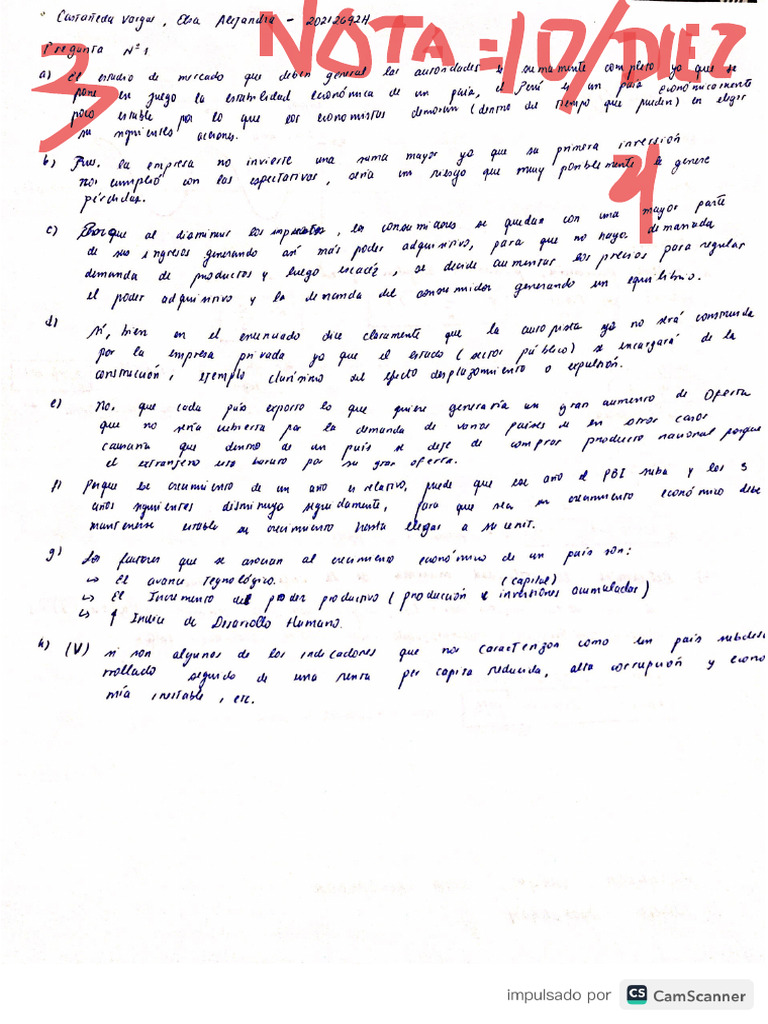 Castañeda Vargas, Elsa Alejandra - 20212692H
NOTA = 10/DIEZ
Pregunta Nº 1
3
a) El estudio de mercado que deben general las autoridades es sumamente completo ya que se
pone en juego la estabilidad económica de un país, el Perú es un país económicamente
poco estable por lo que los economistas demoran (dentro del tiempo que pueden) en elegir
su siguientes acciones.
b) Pues, la empresa no invierte una suma mayor ya que su primera inversión
no cumplió con las espectativas, sería un riesgo que muy posiblemente le genere
pérdidas.
1
c) Porque al disminuir los impuestos, los consumidores se quedan con una mayor parte
de sus ingresos generando así más poder adquisitivo, para que no haya demasiada
demanda de productos y luego escaséz, se decide aumentar los precios para regular
el poder adquisitivo y la demanda del consumidor generando un equilibrio.
d) Sí, bien en el enunciado dice claramente que la autopista ya no será construida
por la empresa privada ya que el estado (sector público) se encargará de la
construcción, ejemplo clarísimo del efecto desplazamiento o expulsión.
e) No, que cada país exporte lo que quiere generaría un gran aumento de Oferta
que no sería cubierta por la demanda de varios países y en otros casos
causaría que dentro de un país se deje de comprar producto nacional porque
el extranjero esta barato por su gran oferta.
f) Porque el crecimiento de un año es relativo, puede que ese año el PBI suba y los 3
años siguientes disminuya seguidamente, para que sea un crecimiento económico debe
mantenerse estable su crecimiento hasta llegar a su cenit.
g) Los factores que se asocian al crecimiento económico de un país son:
↳ El avance Tecnológico. (capital)
↳ El Incremento del poder productivo (producción e inversiones acumuladas)
↳ ↑ Indice de Desarrollo Humano.
h) (V) si son algunos de los indicadores que nos caracterizan como un país subdesa
rrollado seguido de una renta per capita reducida, alta corrupción y econo
mía inestable, etc.
impulsado por CS CamScanner